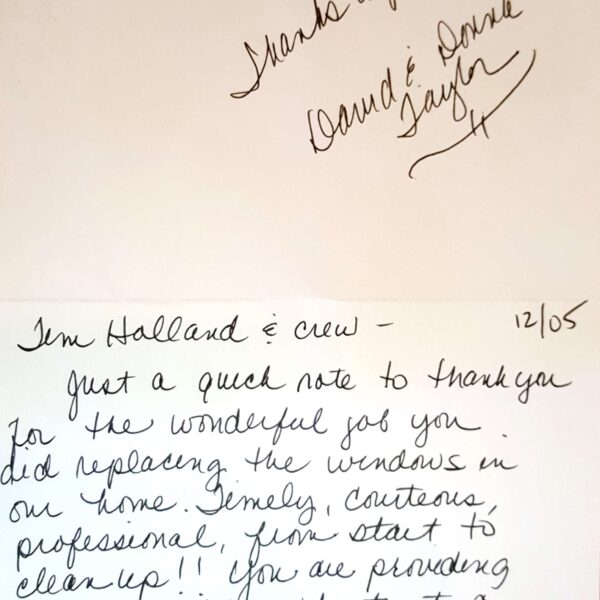 Thanks
David & Donna
Taylor
12/05
Tem Holland & crew -
Just a quick note to thank you
for the wonderful job you
did replacing the windows in
our home. Timely, courteous,
professional, from start to
clean up!! You are providing